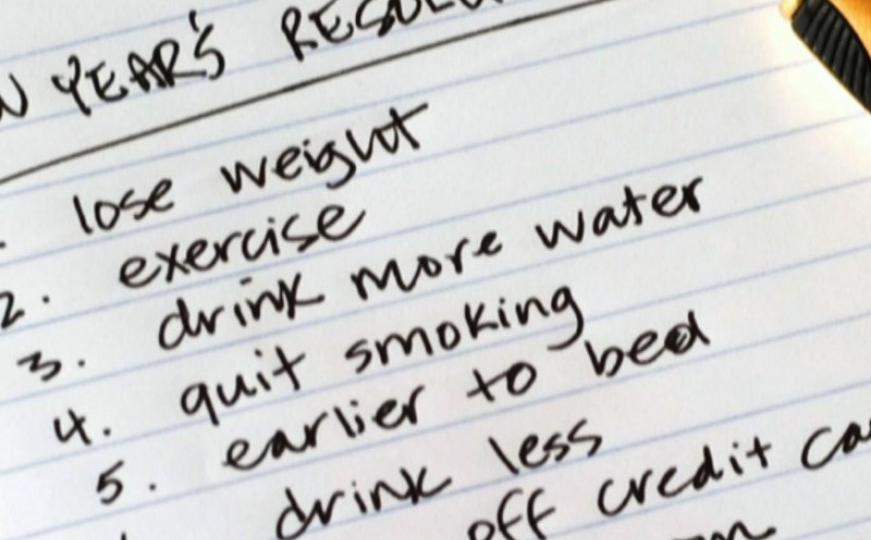 YEAR'S
1. lose weight
2. exercise
3. drink more water
4. quit smoking
5. earlier to bed
drink less
off credit